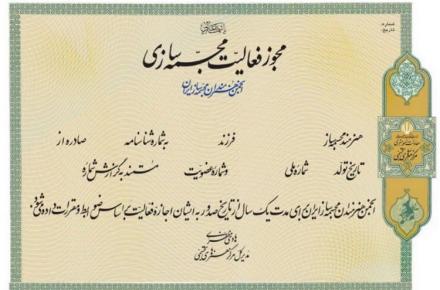 شماره:
تاریخ:
مجوز فعالیت مجسمه سازی
انجمن هنرمندان مجسمه ساز ایران
هنرمند مجسمه ساز فرزند به شماره شناسنامه صادره از
تاریخ تولد شماره ملی و شماره عضویت مستند به گزارش شماره
انجمن هنرمندان مجسمه ساز ایران برای مدت یک سال از تاریخ صدور به ایشان اجازه فعالیت بر اساس ضوابط و مقررات داده می شود.
هادی مظفری
مدیر کل مرکز هنرهای تجسمی